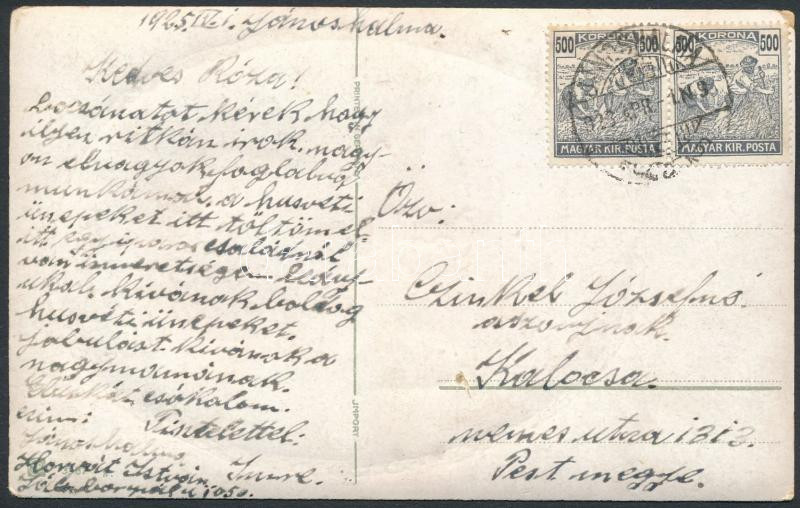 1925 IV. 1. Jánoshalma.
Kedves Róza!
Bocsánatot kérek hogy
ilyen ritkán irok. nagy-
on elvagyok foglalva
munkával, a husveti
ünepeket itt töltöm el
itt egy iparos családnál
van ismeretsége
Kivánok boldog
husveti ünepeket.
jobulást kivánok a
nagymamának.
csókolom.
cim: Tisztelettel:
Jánoshalma Imre.
Horvát István
500 KORONA 500
MAGYAR KIR. POSTA
500 KORONA 500
MAGYAR KIR. POSTA
Özv:
Czinkel Józsefné
asszonynak.
Kalocsa.
nemes utca 1313.
Pest megye.
IMPORT